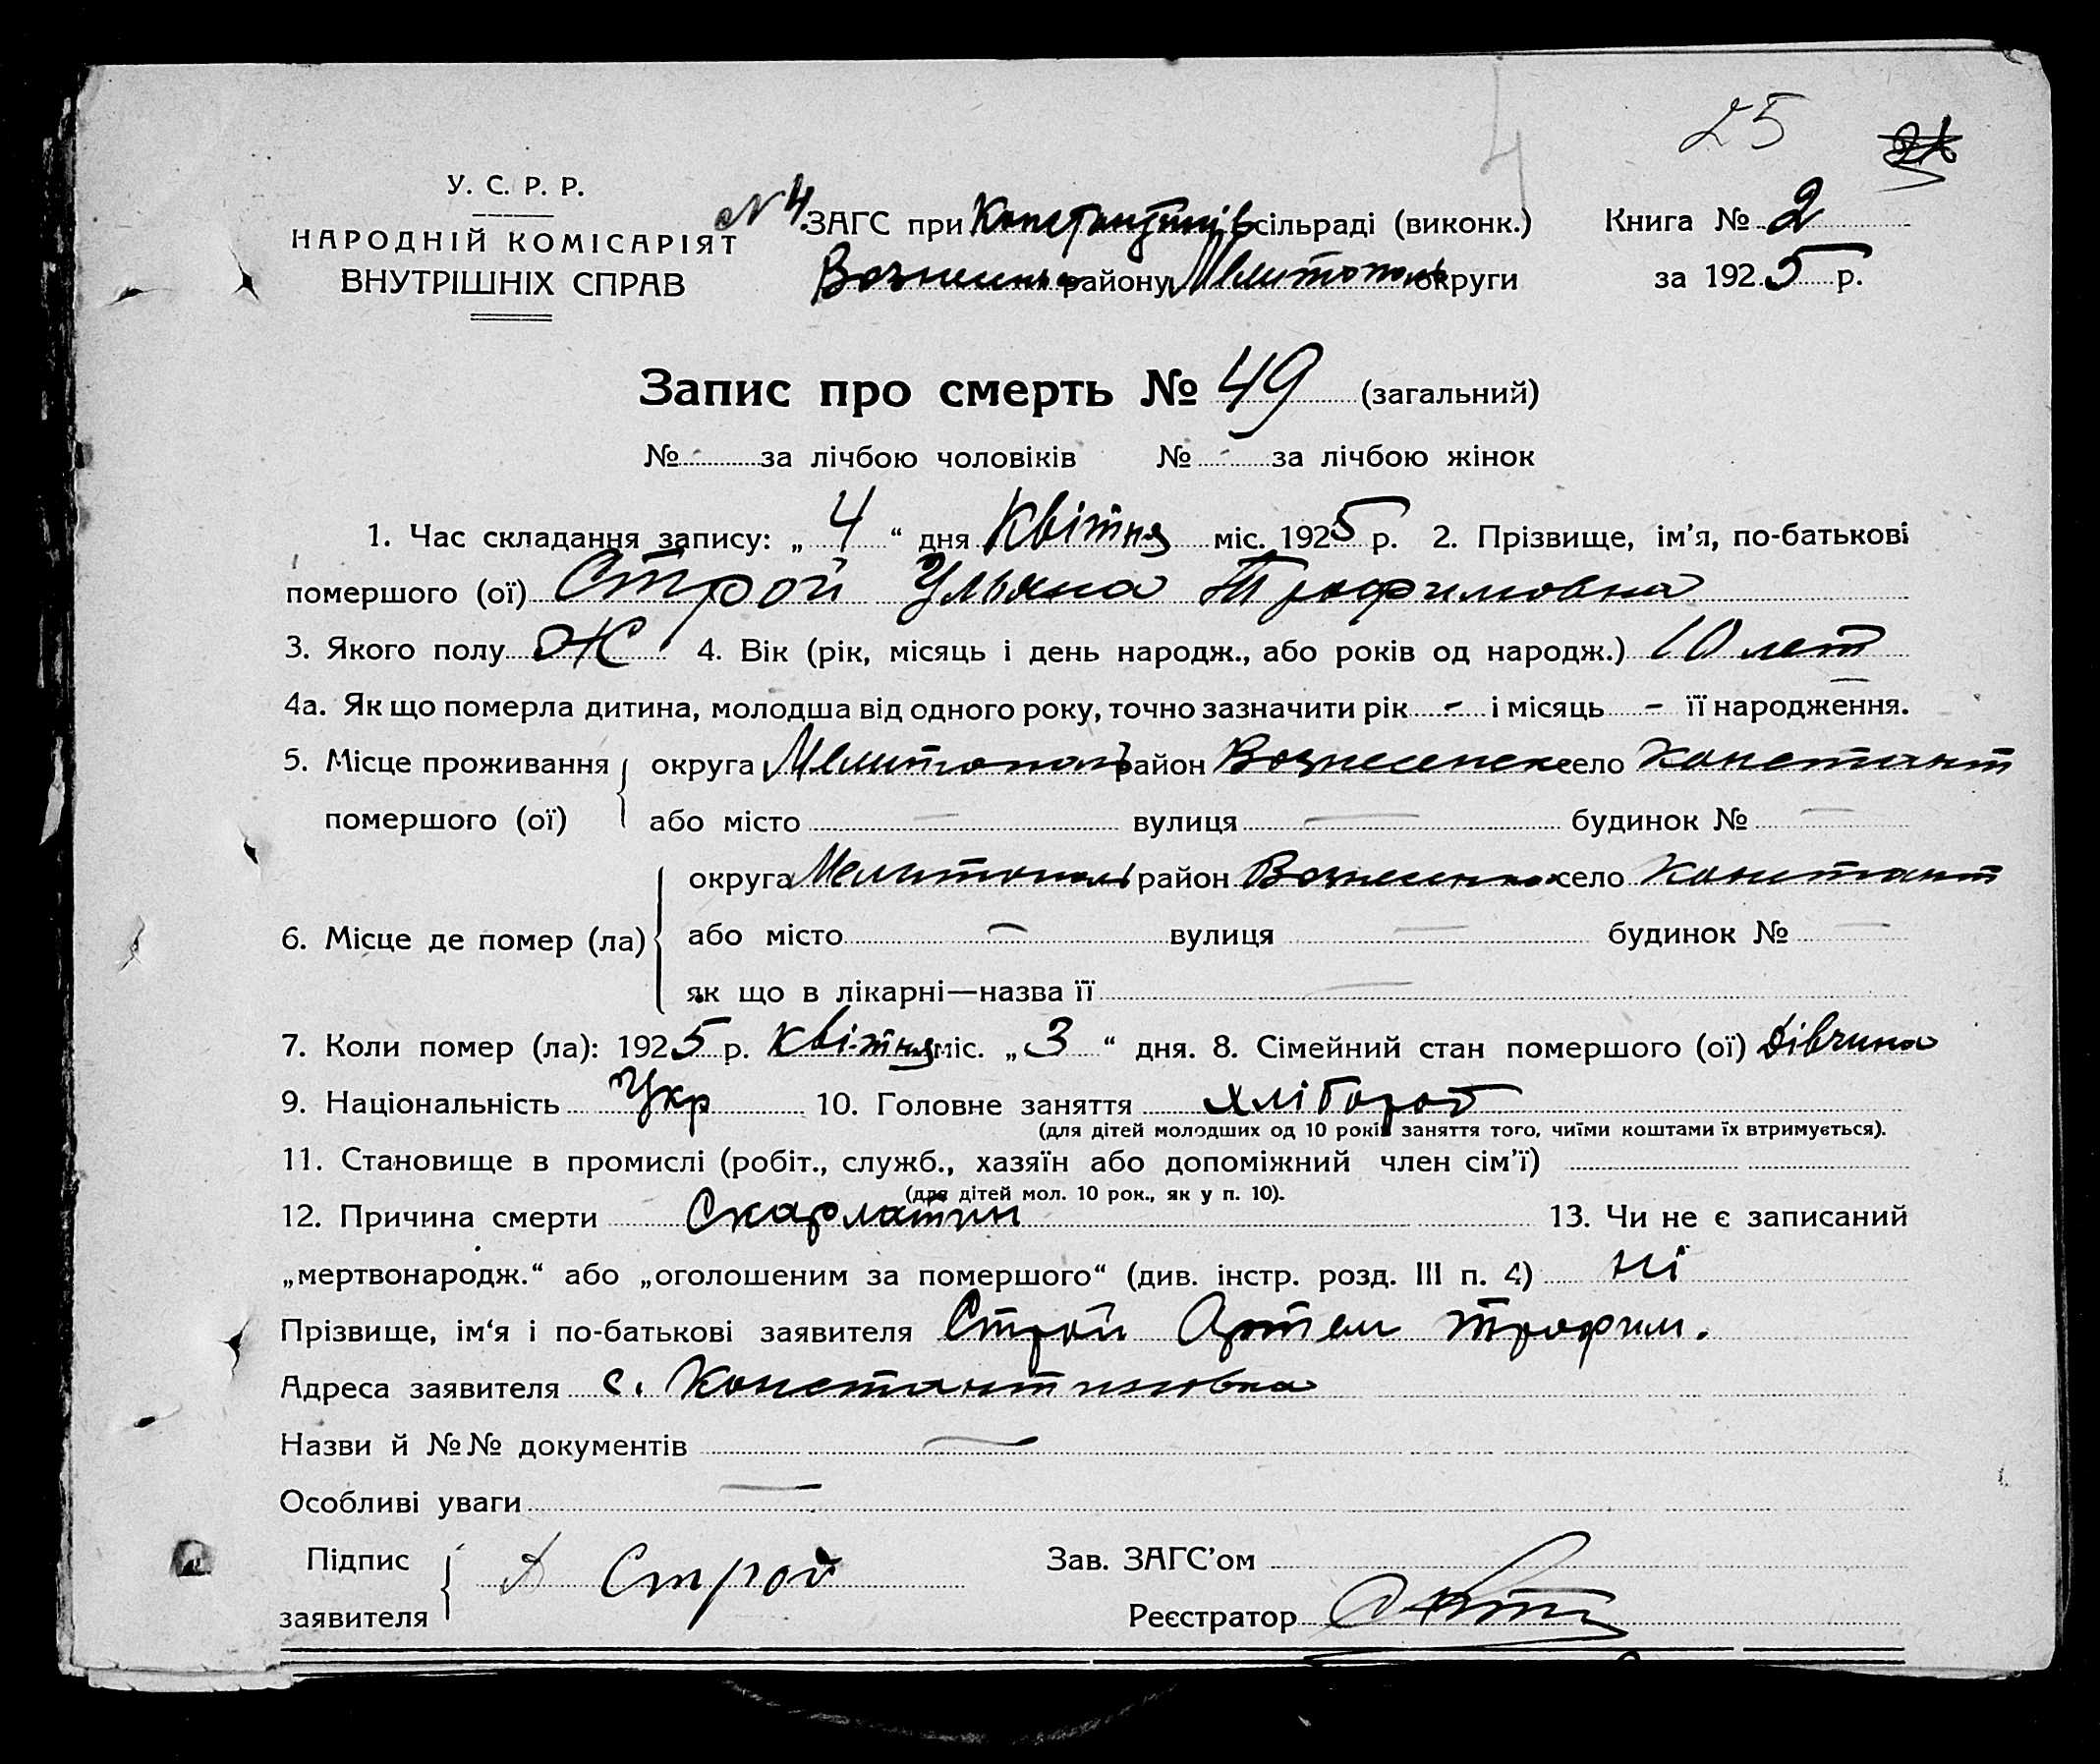 4
25
У. С. Р. Р.
НАРОДНІЙ КОМІСАРІЯТ
ВНУТРІШНІХ СПРАВ
N 4. ЗАГС при Константинів сільраді (виконк.)
району Мелитополь округи
Книга № 2
за 1925 р.
Запис про смерть № 49 (загальний)
№ - за лічбою чоловіків № - за лічбою жінок
1. Час складання запису: „ 4 “ дня Квітня міс. 1925 р. 2. Прізвище, ім'я, по-батькові
помершого (ої) Строй Ульяна Трофимовна
3. Якого полу Ж 4. Вік (рік, місяць і день народж., або років од народж.) 10 лет
4а. Як що померла дитина, молодша від одного року, точно зазначити рік - і місяць - її народження.
5. Місце проживання округа Мелитополь район Вознесенск село Констант
помершого (ої) або місто — вулиця — будинок № —
округа Мелитополь район село Констант
6. Місце де помер (ла) або місто — вулиця — будинок № —
як що в лікарні—назва її —
7. Коли помер (ла): 1925 р. Квітня міс. „ 3 “ дня. 8. Сімейний стан помершого (ої) Дівчина
9. Національність Укр 10. Головне заняття хлібороб
(для дітей молодших од 10 років заняття того, чиїми коштами їх втримується).
11. Становище в промислі (робіт., служб., хазяїн або допоміжний член сім'ї)
(для дітей мол. 10 рок., як у п. 10).
12. Причина смерти Скарлатин 13. Чи не є записаний
„мертвонародж.“ або „оголошеним за помершого“ (див. інстр. розд. III п. 4) ні
Прізвище, ім'я і по-батькові заявителя Строй Артем Трофим.
Адреса заявителя с. Константиновка
Назви й №№ документів —
Особливі уваги —
Підпис заявителя А Строй
Зав. ЗАГС'ом
Реєстратор